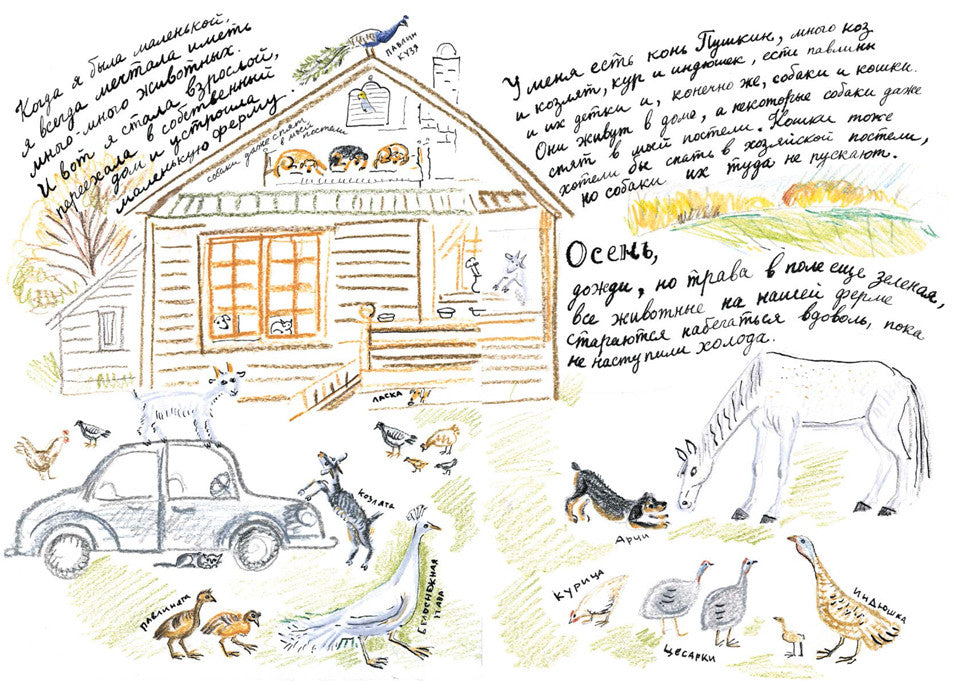 Когда я была маленькой,
я всегда мечтала иметь
много-много животных.
И вот я стала взрослой,
переехала в собственный
дом и устроила
маленькую ферму.
ПАВЛИН
КУЗЯ
собаки даже спят
в моей постели
У меня есть конь Пушкин, много коз
и козлят, кур и индюшек, есть павлины
и их детки и, конечно же, собаки и кошки.
Они живут в доме, а некоторые собаки даже
спят в моей постели. Кошки тоже
хотели бы спать в хозяйской постели,
но собаки их туда не пускают.
Осень,
дожди, но трава в поле еще зеленая,
все животные на нашей ферме
стараются набегаться вдоволь, пока
не наступили холода.
ЛАСКА
КОЗЛЯТА
ПАВЛИНЯТА
БЕЛОСНЕЖНАЯ
ПАВА
АРЧИ
КУРИЦА
ЦЕСАРКИ
ИНДЮШКА